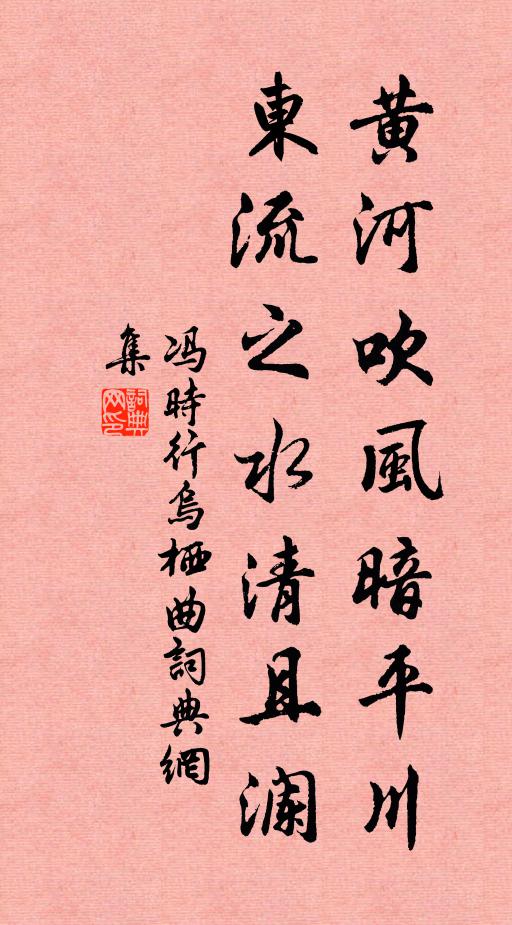 黄河吹風暗平川
東流之水清且澜
冯時行烏栖曲詞典網
集
詞典
网印